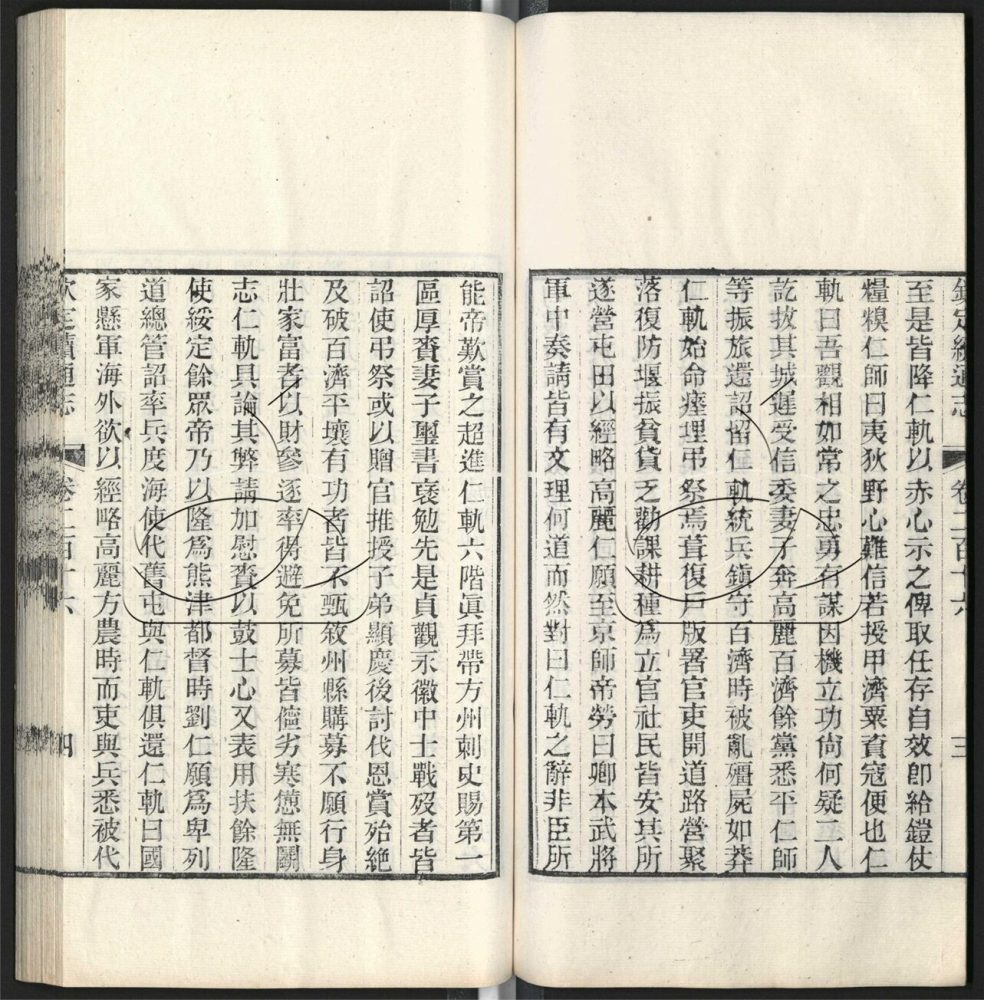 欽定續通志 卷二百十六 三
至是皆降仁軌以赤心示之俾取任存自效卽給鎧仗
糧糗仁師曰夷狄野心難信若授甲濟粟資寇便也仁
軌曰吾觀相如常之忠勇有謀因機立功尚何疑二人
訖拔其城遲受信委妻子奔高麗百濟餘黨悉平仁師
等振旅還詔留仁軌統兵鎮守百濟時被亂殭屍如莽
仁軌始命瘞埋弔祭焉葺復戶版署官吏開道路營聚
落復防堰振貧貸乏勸課耕種爲立官社民皆安其所
遂營屯田以經略高麗仁願至京師帝勞曰卿本武將
軍中奏請皆有文理何道而然對曰仁軌之辭非臣所
能帝歎賞之超進仁軌六階眞拜帶方州刺史賜第一
區厚賚妻子璽書褒勉先是貞觀永徽中士戰歿者皆
詔使弔祭或以贈官推授子弟顯慶後討伐恩賞殆絶
及破百濟平壤有功者皆不甄敘州縣購募不願行身
壯家富者以財參逐率得避免所募皆儜劣寒憊無鬬
志仁軌具論其弊請加慰賚以鼓士心又表用扶餘隆
使綏定餘眾帝乃以隆爲熊津都督時劉仁願爲卑列
道總管詔率兵度海使代舊屯與仁軌俱還仁軌曰國
家懸軍海外欲以經略高麗方農時而吏與兵悉被代
欽定續通志 卷二百十六 四